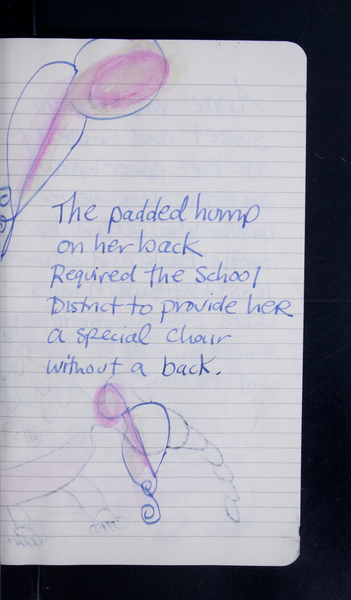 The padded hump
on her back
Required the School
District to provide her
a special chair
without a back.